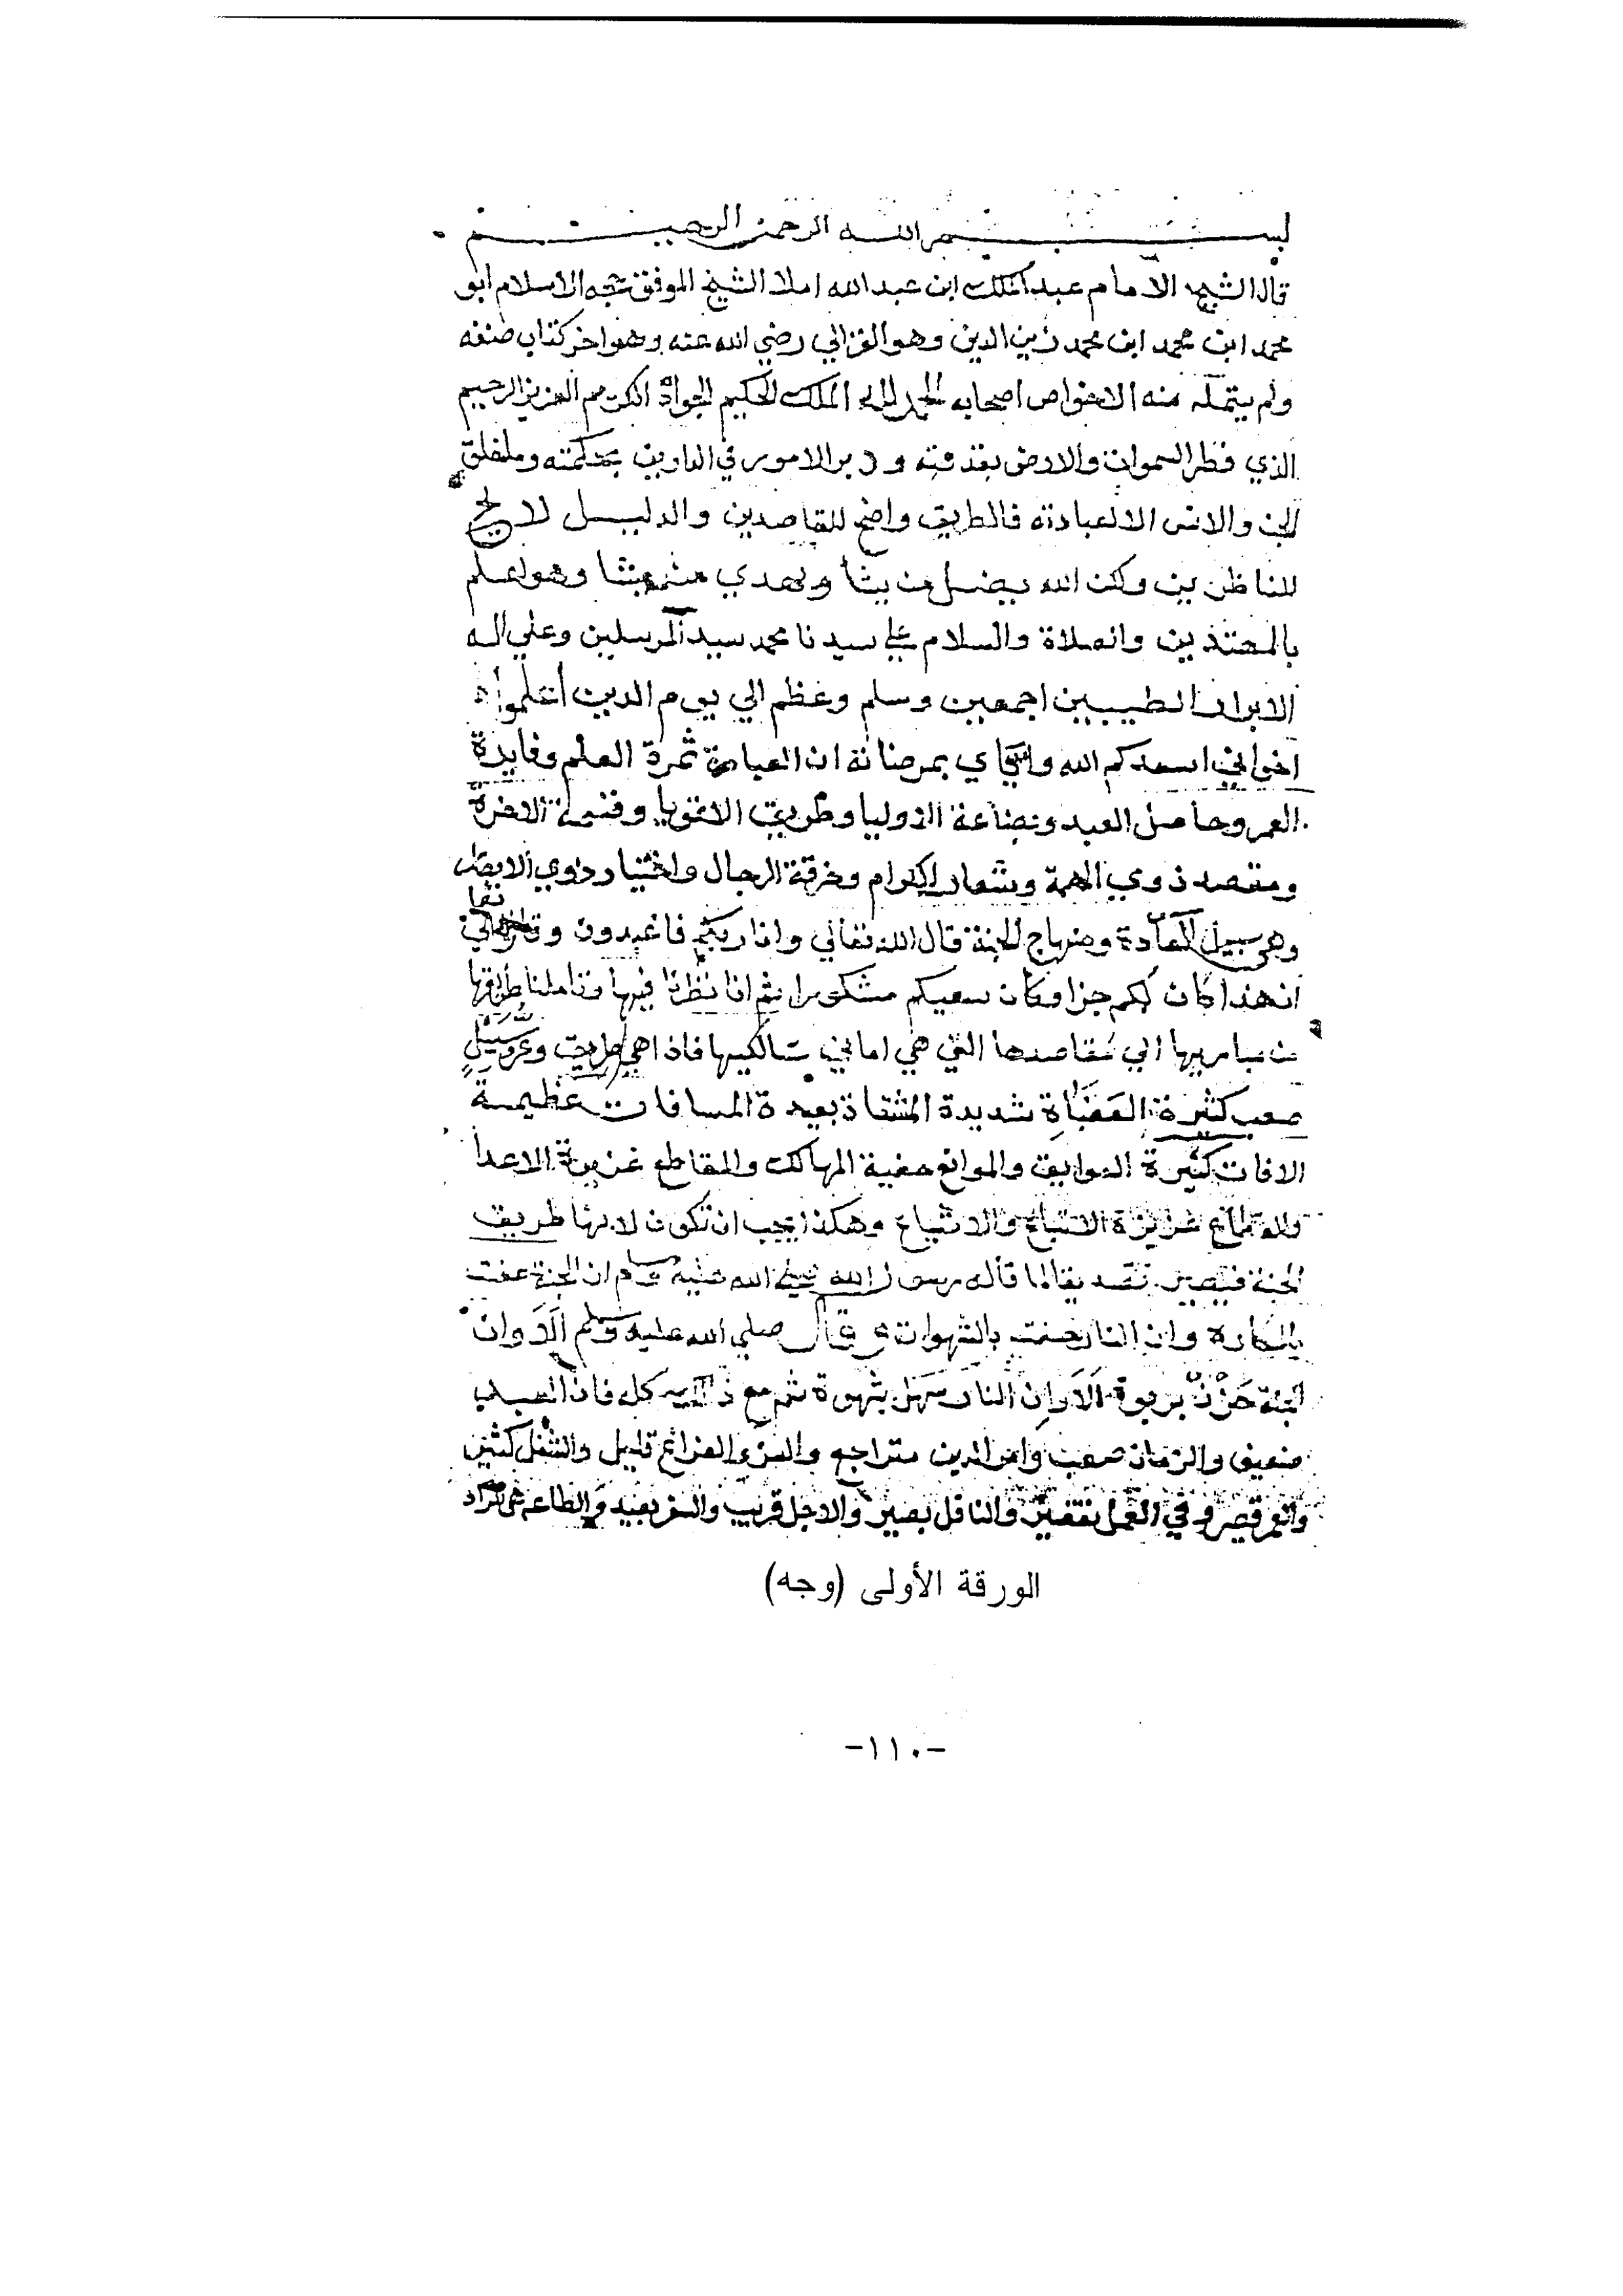 بسم الله الرحمن الرحيم
قال الشيخ الامام عبد الملك ابن عبد الله املا الشيخ الموفق حجة الاسلام ابو
محمد ابن محمد ابن محمد زين الدين وهو الغزالي رضي الله عنه وهو اخر كتاب صنفه
ولم يستمله منه الا خواص اصحابه الحمد لله الملك الحكيم الجواد الكريم العزيز الرحيم
الذي فطر السموات والارض بقدرته ودبر الامور في الدارين بحكمته وما خلق
الجن والانس الا لعبادته فالطريق واضح للقاصدين والدليل لايح
للناظرين ولكن الله يضل من يشا ويهدي من يشا وهو اعلم
بالمهتدين والصلاة والسلام علي سيدنا محمد سيد المرسلين وعلي اله
الابرار الطيبين اجمعين وسلم وعظم الي يوم الدين أعلموا
اخواني اسعدكم الله واياي بمرضاته ان العبادة ثمرة العلم وفايدة
العمر وحاصل العبد وبضاعة الاوليا وطريق الاقويا وقسمة الاخرة
ومقصد ذوي الهمة وشعار الكرام وحرفة الرجال واختيار ذوي الابصار
وهي سبيل السعادة ومنهاج الجنة قال الله تعالي وانا ربكم فاعبدون وقال تعالي
ان هذا كان لكم جزا وكان سعيكم مشكورا ثم انا نظرنا فيها وتاملنا طريقها
من مباديها الي مقاصدها التي هي اماني سالكيها فاذا هي طريق وعر وسبيل
صعب كثيرة العقبات شديدة المشقات بعيدة المسافات عظيمة
الافات كثيرة العوايق والموانع خفية المهالك والمقاطع غزيرة الاعدا
والقطاع عزيزة الاتباع والاشياع وهكذا يجب ان تكون لانها طريق
الجنة فيصير تصديقا لما قاله رسول الله صلي الله عليه وسلم ان الجنة حفت
بالمكاره وان النار حفت بالشهوات وقال صلي الله عليه وسلم الا وان
الجنة حزن بربوة الا وان النار سهل بشهوة ثم مع ذلك كله فان العبد
ضعيف والزمان صعب وامر الدين متراجع والفراغ قليل والشغل كثير
والعمر قصير وفي العمل تقصير والناقد بصير والاجل قريب والسفر بعيد والطاعه هي الزاد
الورقة الأولى (وجه)
-١١٠-